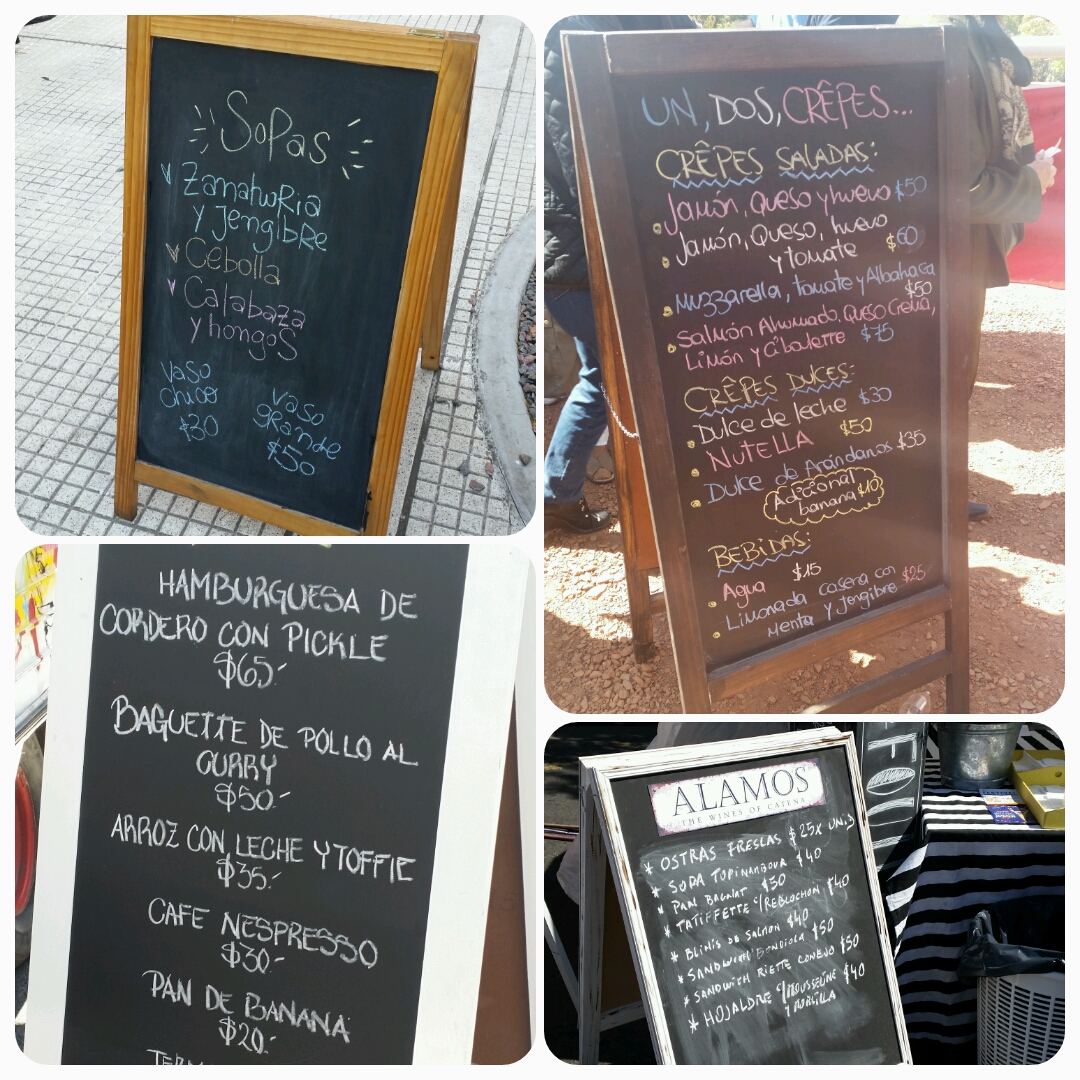 Sopas
Zanahoria
y Jengibre
Cebolla
Calabaza
y hongos
vaso
chico
$30
vaso
grande
$50
UN, DOS, CRÊPES...
CRÊPES SALADAS:
Jamón, Queso y huevo $50
Jamón, Queso, huevo
y tomate $60
Muzzarella, tomate y Albahaca
$50
Salmón Ahumado, Queso Crema,
Limón y Ciboulette $75
CRÊPES DULCES:
Dulce de leche $30
NUTELLA $50
Dulce de Arándanos $35
Adicional
banana $10
BEBIDAS:
Agua $15
Limonada casera con $25
Menta y Jengibre
HAMBURGUESA DE
CORDERO CON PICKLE
$65.-
BAGUETTE DE POLLO AL
CURRY
$50.-
ARROZ CON LECHE Y TOFFIE
$35.-
CAFE NESPRESSO
$30.-
PAN DE BANANA
$20.-
ALAMOS
THE WINES OF CATENA
* OSTRAS FRESCAS $25 X UNID
* SOPA TOPINAMBOUR $40
* PAN BAGNAT $30
* TATIFFETTE C/REBLOCHON $40
* BLINIS DE SALMON $40
* SANDWICH BONDIOLA $50
* SANDWICH RIETTE CONEJO $50
* HOJALDRE C/MOUSSELINE $40
Y MORCILLA